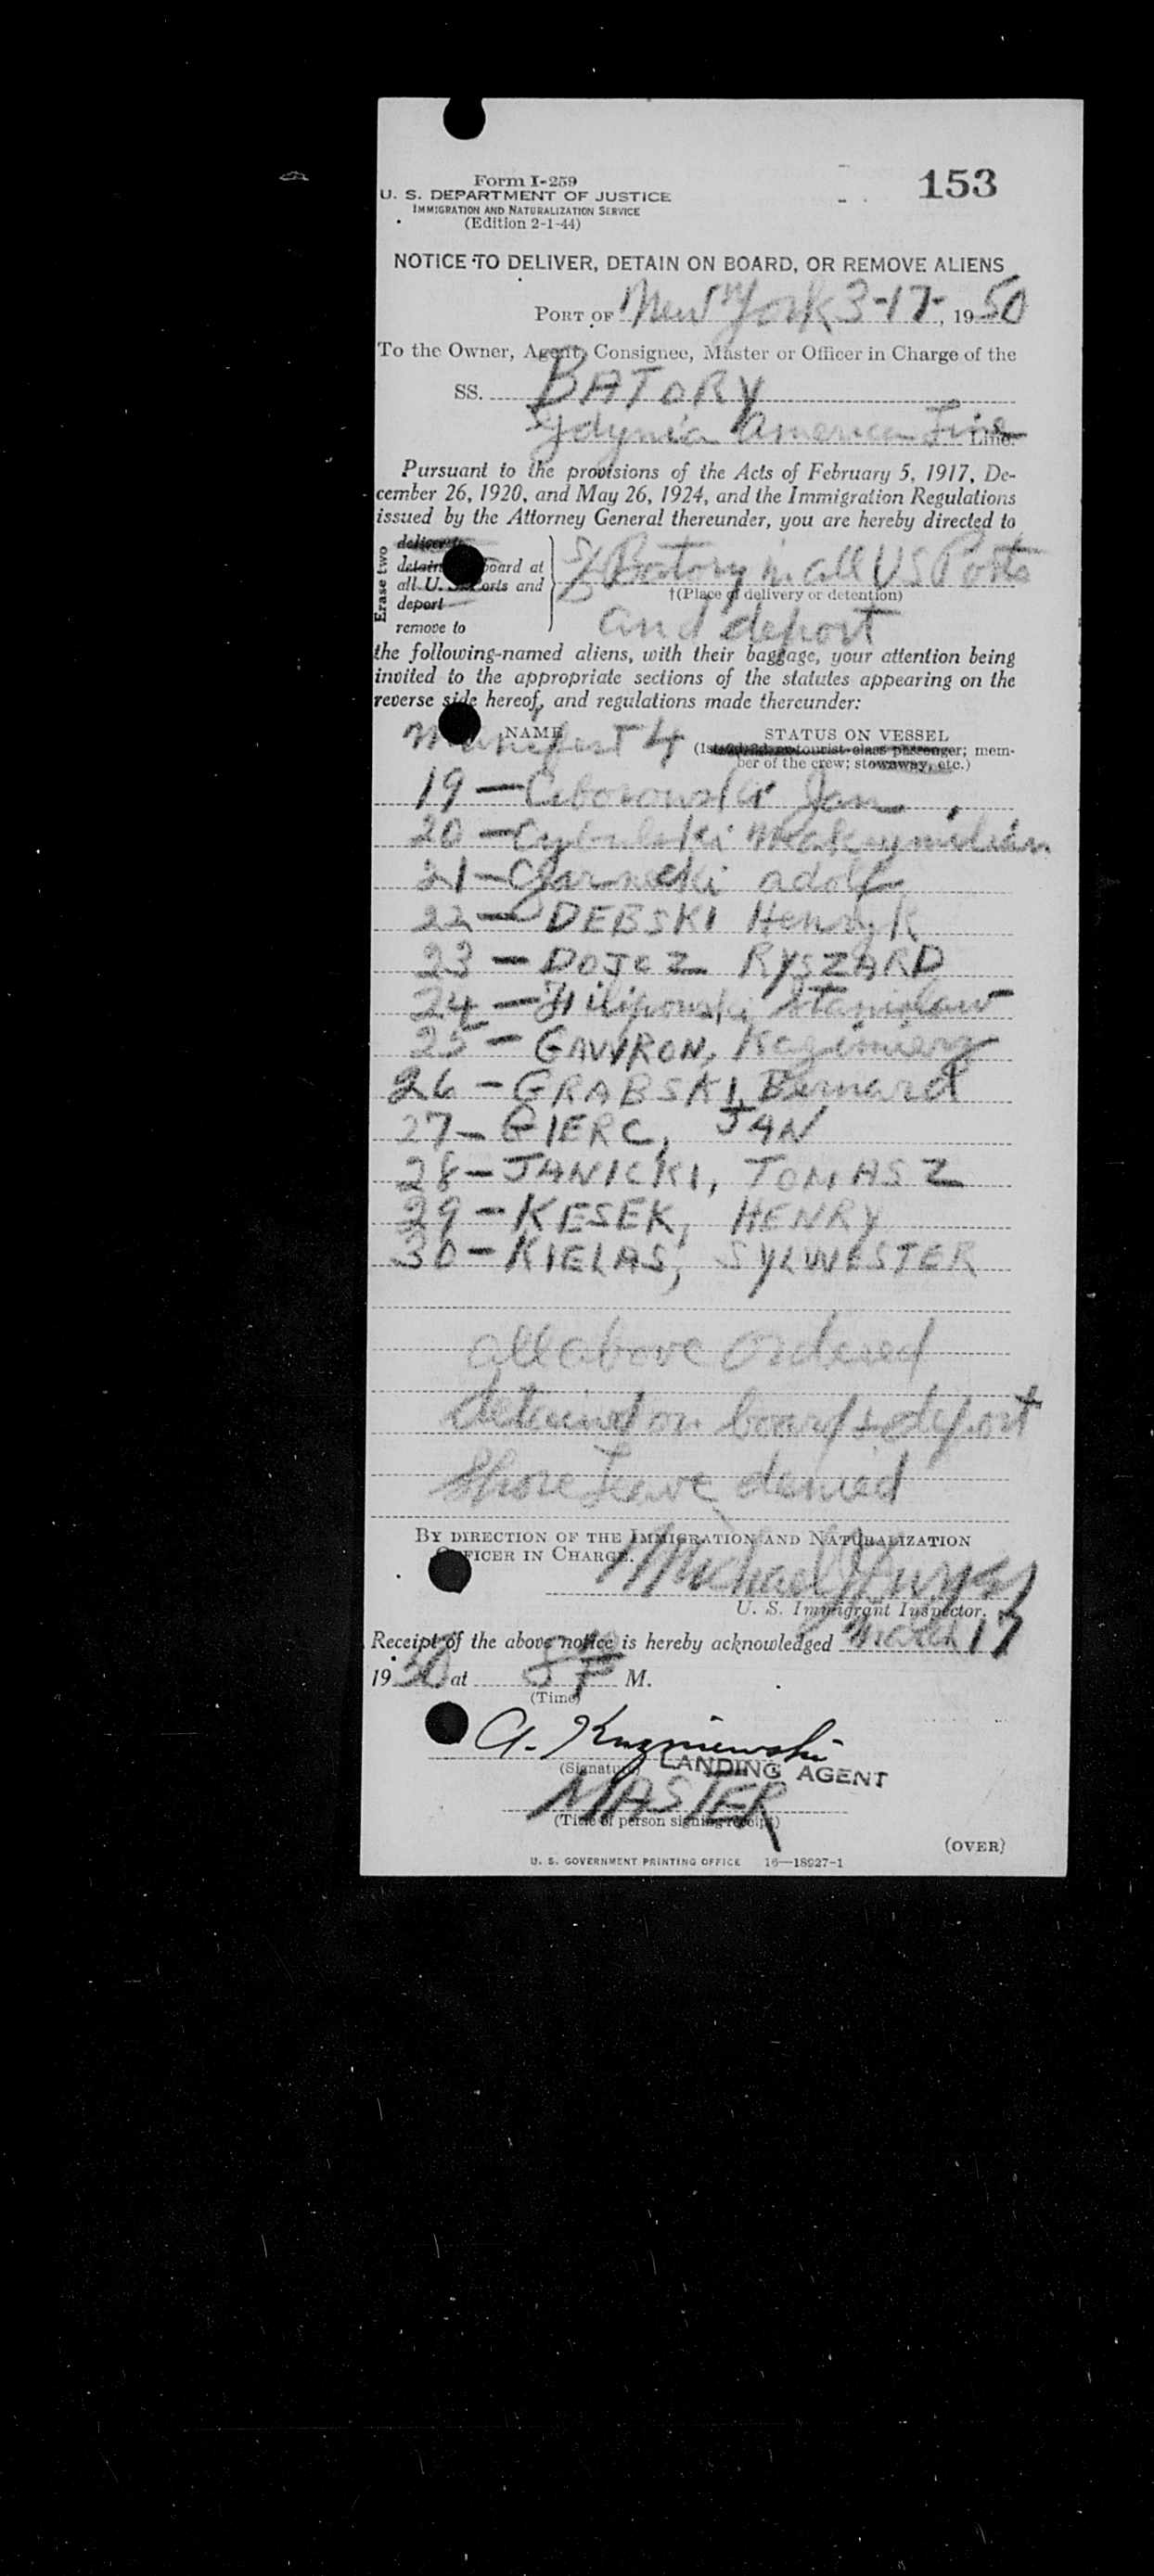 153
Form I-259
U. S. DEPARTMENT OF JUSTICE
IMMIGRATION AND NATURALIZATION SERVICE
(Edition 2-1-44)
NOTICE TO DELIVER, DETAIN ON BOARD, OR REMOVE ALIENS
PORT OF New York 3-17-, 1950
To the Owner, Agent, Consignee, Master or Officer in Charge of the
SS. BATORY
Gdynia America Line Line.
Pursuant to the provisions of the Acts of February 5, 1917, De-
cember 26, 1920, and May 26, 1924, and the Immigration Regulations
issued by the Attorney General thereunder, you are hereby directed to
Erase two
deliver to
detain board at
all U. S. Ports and
deport
remove to
Batory in all US Ports
†(Place of delivery or detention)
and deport
the following-named aliens, with their baggage, your attention being
invited to the appropriate sections of the statutes appearing on the
reverse side hereof, and regulations made thereunder:
Manifest 4
NAME
STATUS ON VESSEL
(1st, 2d, 3d, or tourist-class passenger; mem-
ber of the crew; stowaway, etc.)
19 - Ciborowski Jan
20 - Cybulski Maksymilian
21 - Czarnecki Adolf
22 - DEBSKI Henryk
23 - DOJCZ RYSZARD
24 - Filipowski Stanislaw
25 - GAWRON, Kazimierz
26 - GRABSKI, Bernard
27 - GIERC, JAN
28 - JANICKI, TOMASZ
29 - KESEK, HENRY
30 - KIELAS, SYLWESTER
all above ordered
detained on board & deport
Shore Leave denied
BY DIRECTION OF THE IMMIGRATION AND NATURALIZATION
OFFICER IN CHARGE.
Michael
U. S. Immigrant Inspector.
Receipt of the above notice is hereby acknowledged March 17
1950 at 8 P M.
(Time)
A. Kuzniewski
(Signature) LANDING AGENT
MASTER
(Title of person signing receipt)
(OVER)
U. S. GOVERNMENT PRINTING OFFICE 16—18927-1